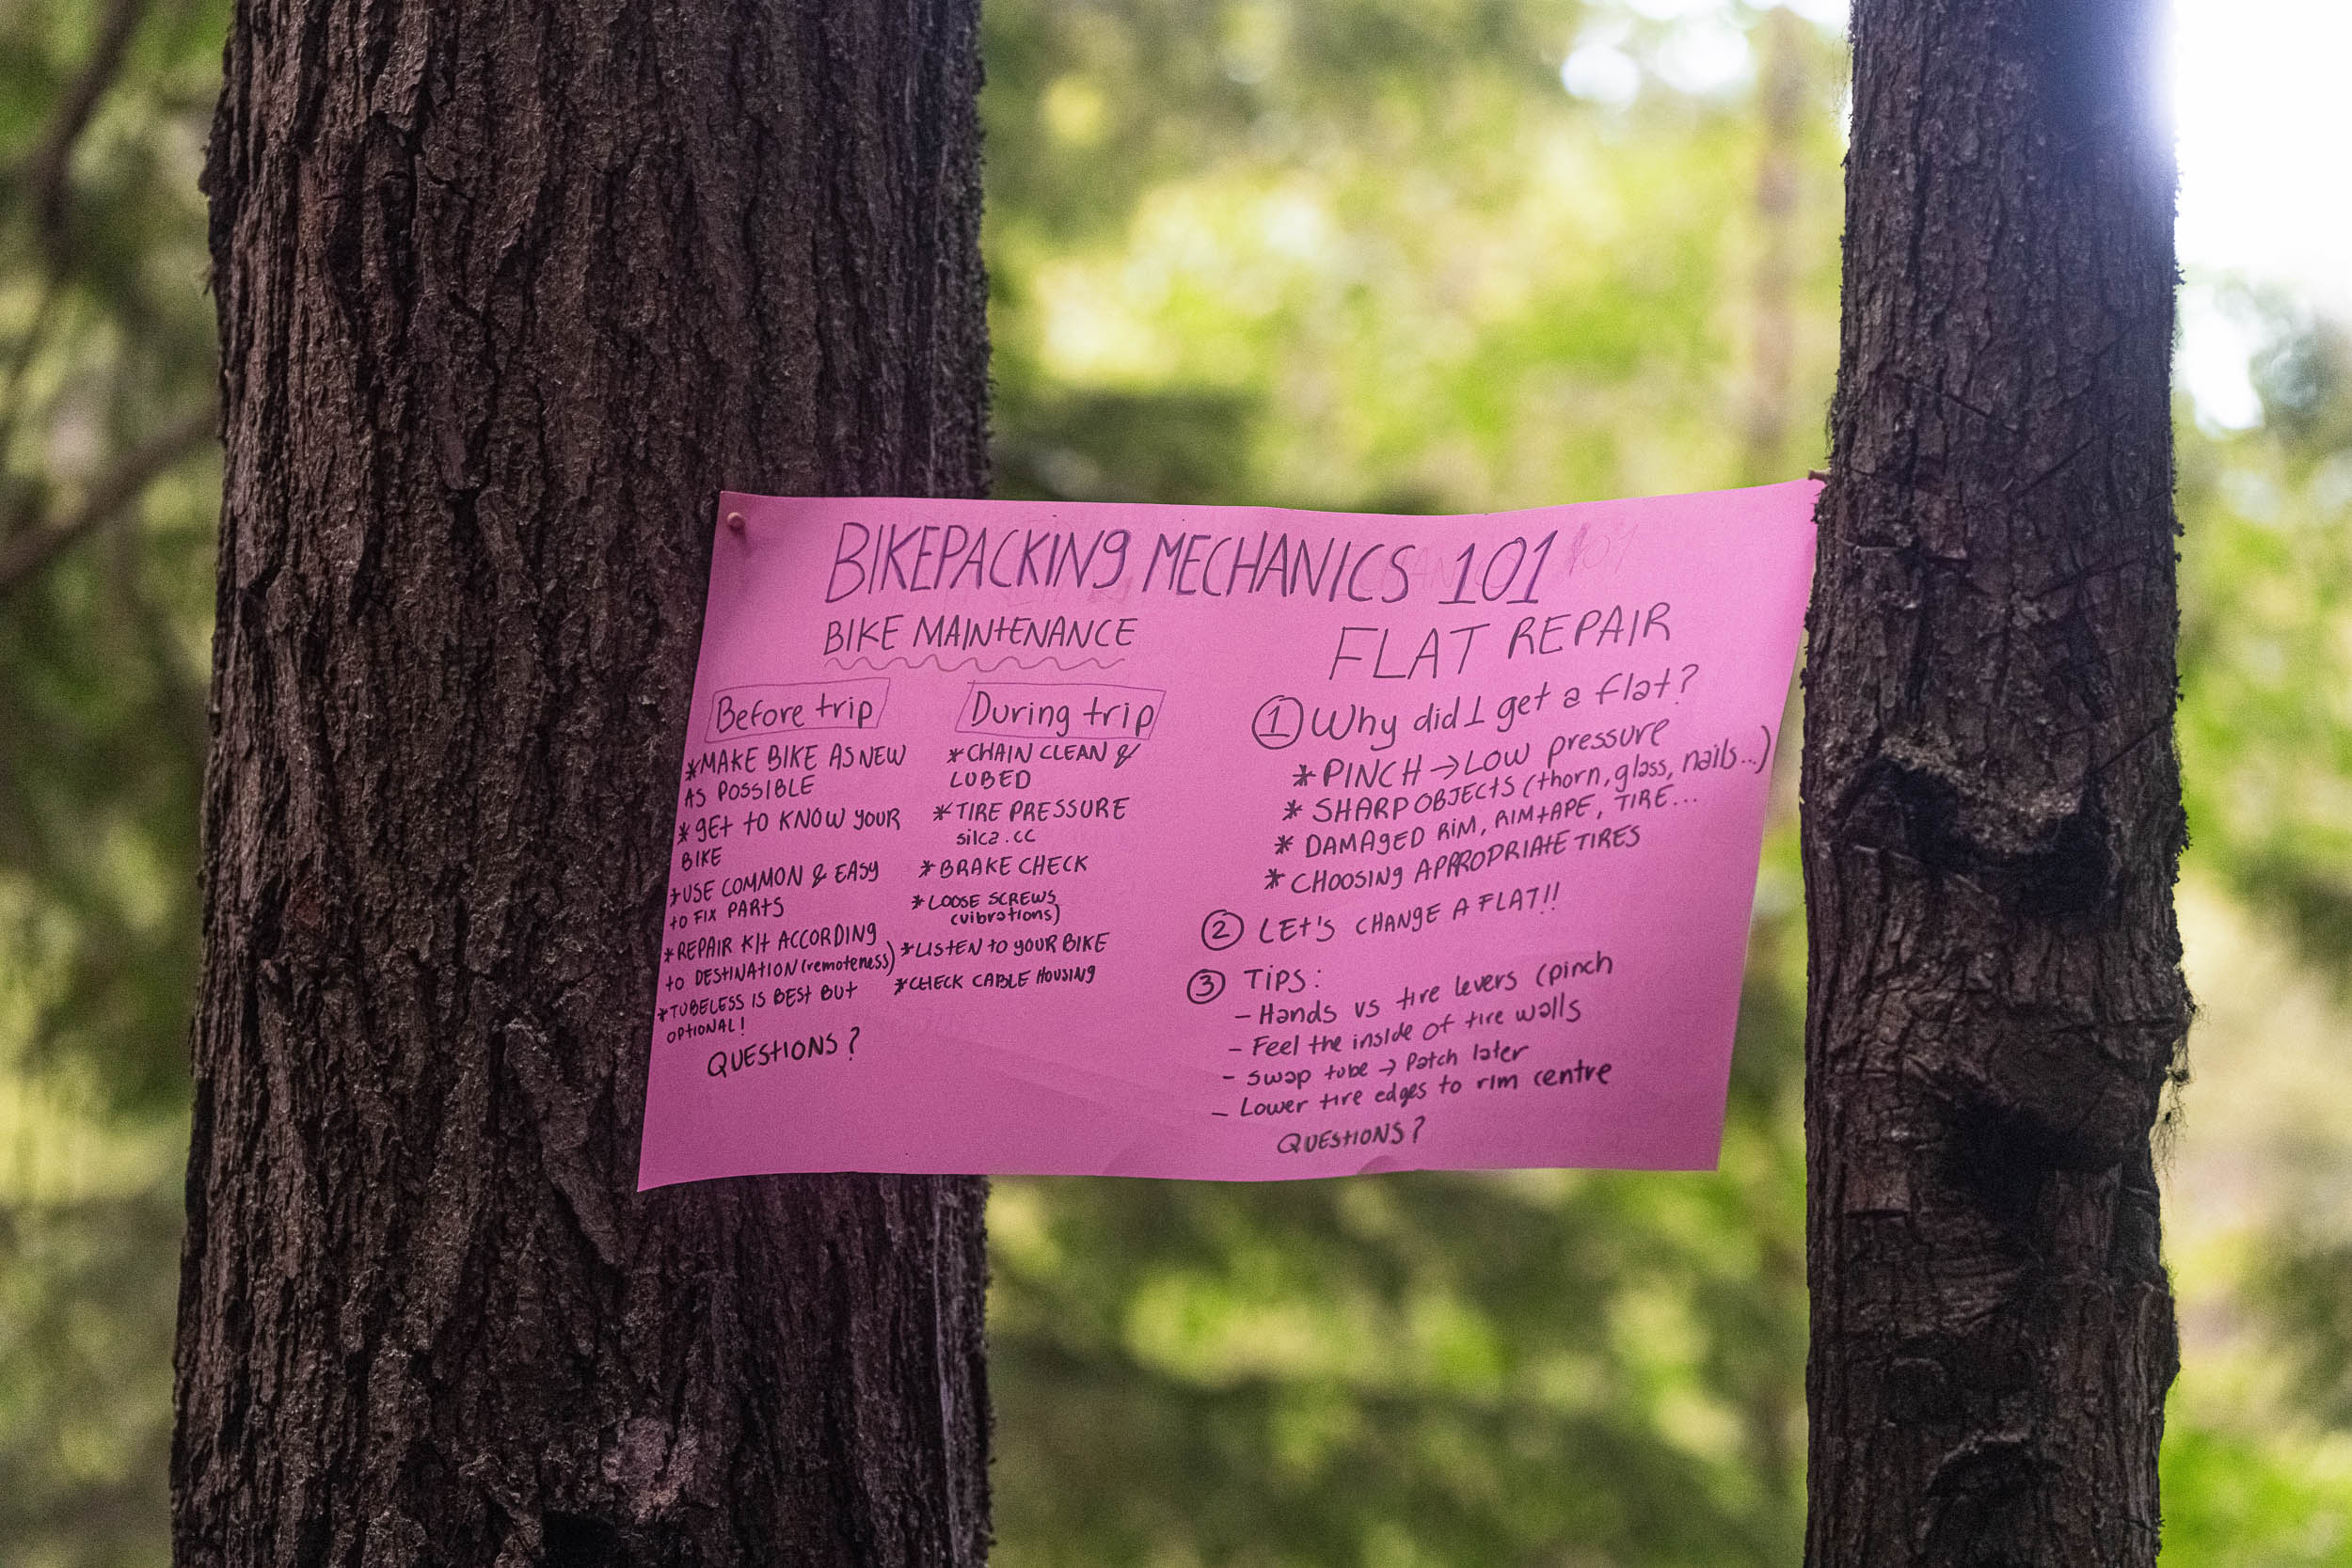 BIKEPACKING MECHANICS 101
BIKE MAINTENANCE
Before trip
*MAKE BIKE AS NEW
AS POSSIBLE
*GET TO KNOW YOUR
BIKE
*USE COMMON & EASY
TO FIX PARTS
*REPAIR KIT ACCORDING
TO DESTINATION (remoteness)
*TUBELESS IS BEST BUT
OPTIONAL!
QUESTIONS?
During trip
*CHAIN CLEAN &
LUBED
*TIRE PRESSURE
silca.cc
*BRAKE CHECK
*LOOSE SCREWS
(vibrations)
*LISTEN TO YOUR BIKE
*CHECK CABLE HOUSING
FLAT REPAIR
1 Why did I get a flat?
* PINCH → LOW pressure
* SHARP OBJECTS (thorn, glass, nails...)
* DAMAGED RIM, RIMTAPE, TIRE...
* CHOOSING APPROPRIATE TIRES
2 LET'S CHANGE A FLAT!!
3 TIPS:
- Hands vs tire levers (pinch
- Feel the inside of tire walls
- Swap tube → Patch later
- Lower tire edges to rim centre
QUESTIONS?